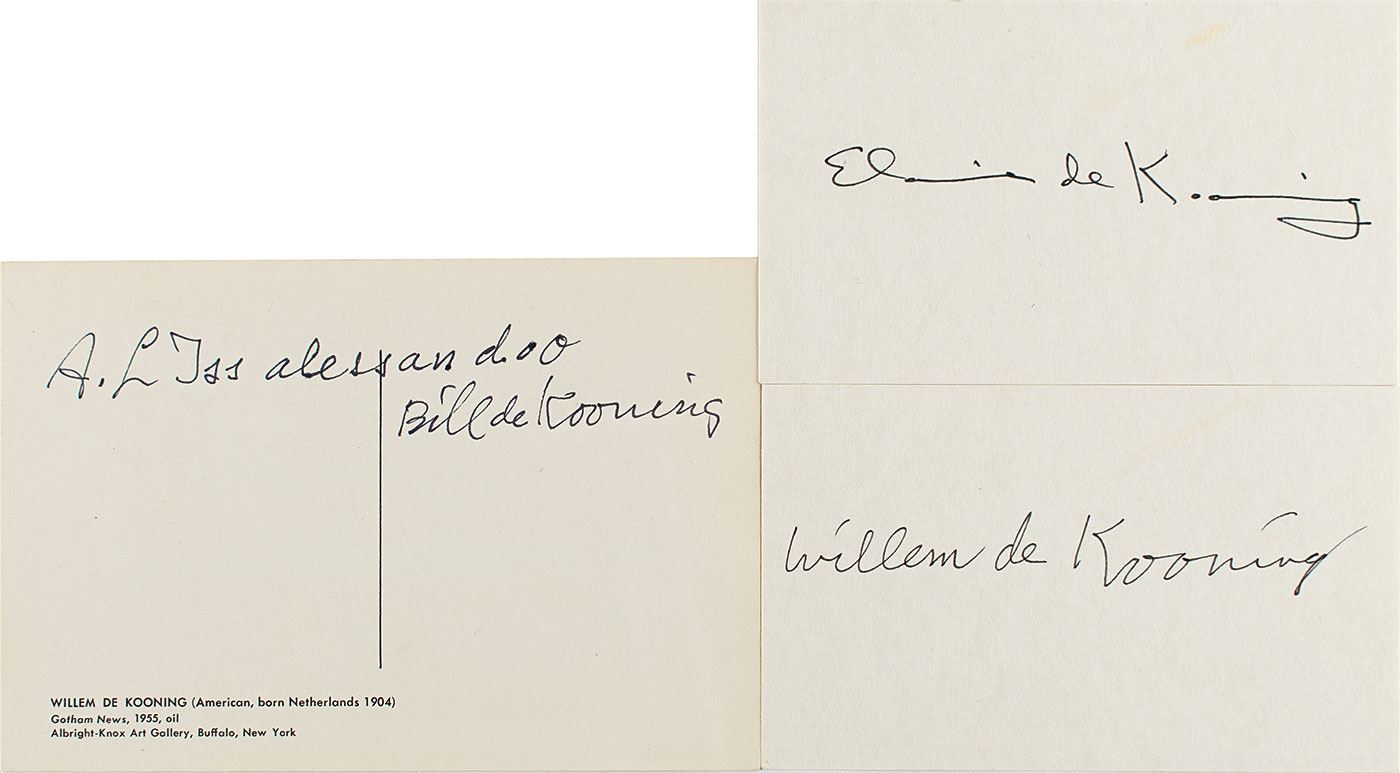 A. L Iss alessandoo
Bill de Kooning
WILLEM DE KOONING (American, born Netherlands 1904)
Gotham News, 1955, oil
Albright-Knox Art Gallery, Buffalo, New York
Elaine de Kooning
Willem de Kooning